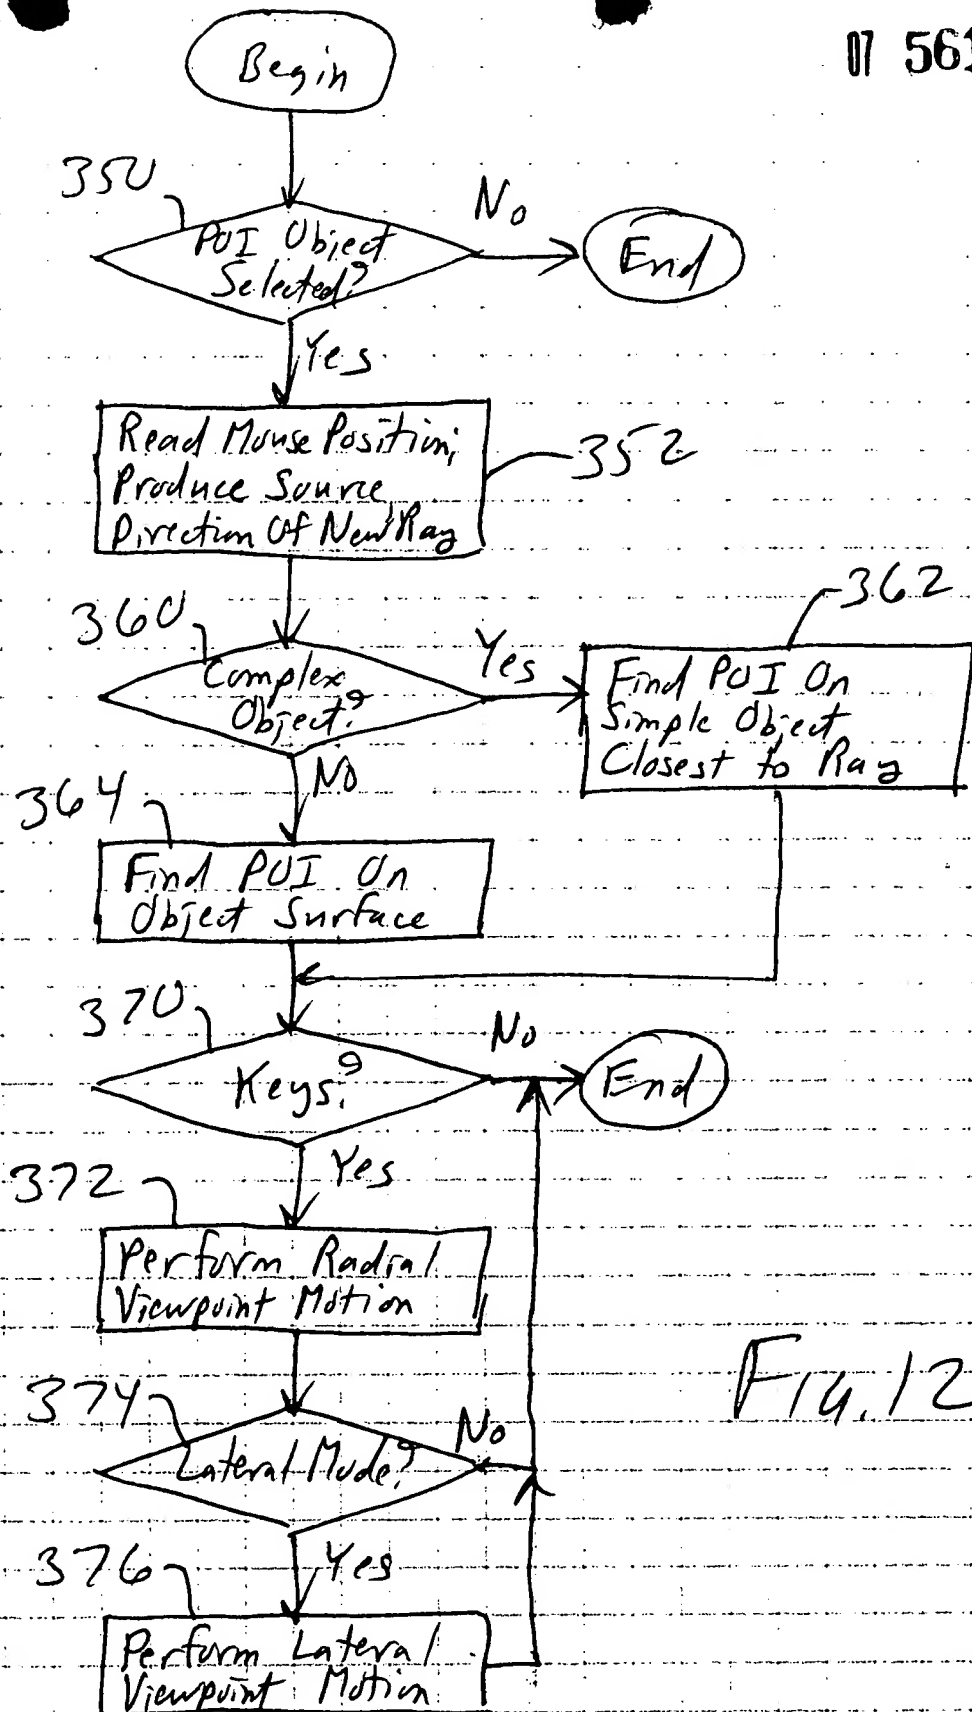 07 561
Begin
350
POI Object
Selected?
No
End
Yes
Read Mouse Position;
Produce Source,
Direction Of New Ray
352
360
Complex
Object?
Yes
362
Find POI On
Simple Object
Closest to Ray
No
364
Find POI On
Object Surface
370
Keys?
No
End
Yes
372
Perform Radial
Viewpoint Motion
374
Lateral Mode?
No
Fig. 12
Yes
376
Perform Lateral
Viewpoint Motion